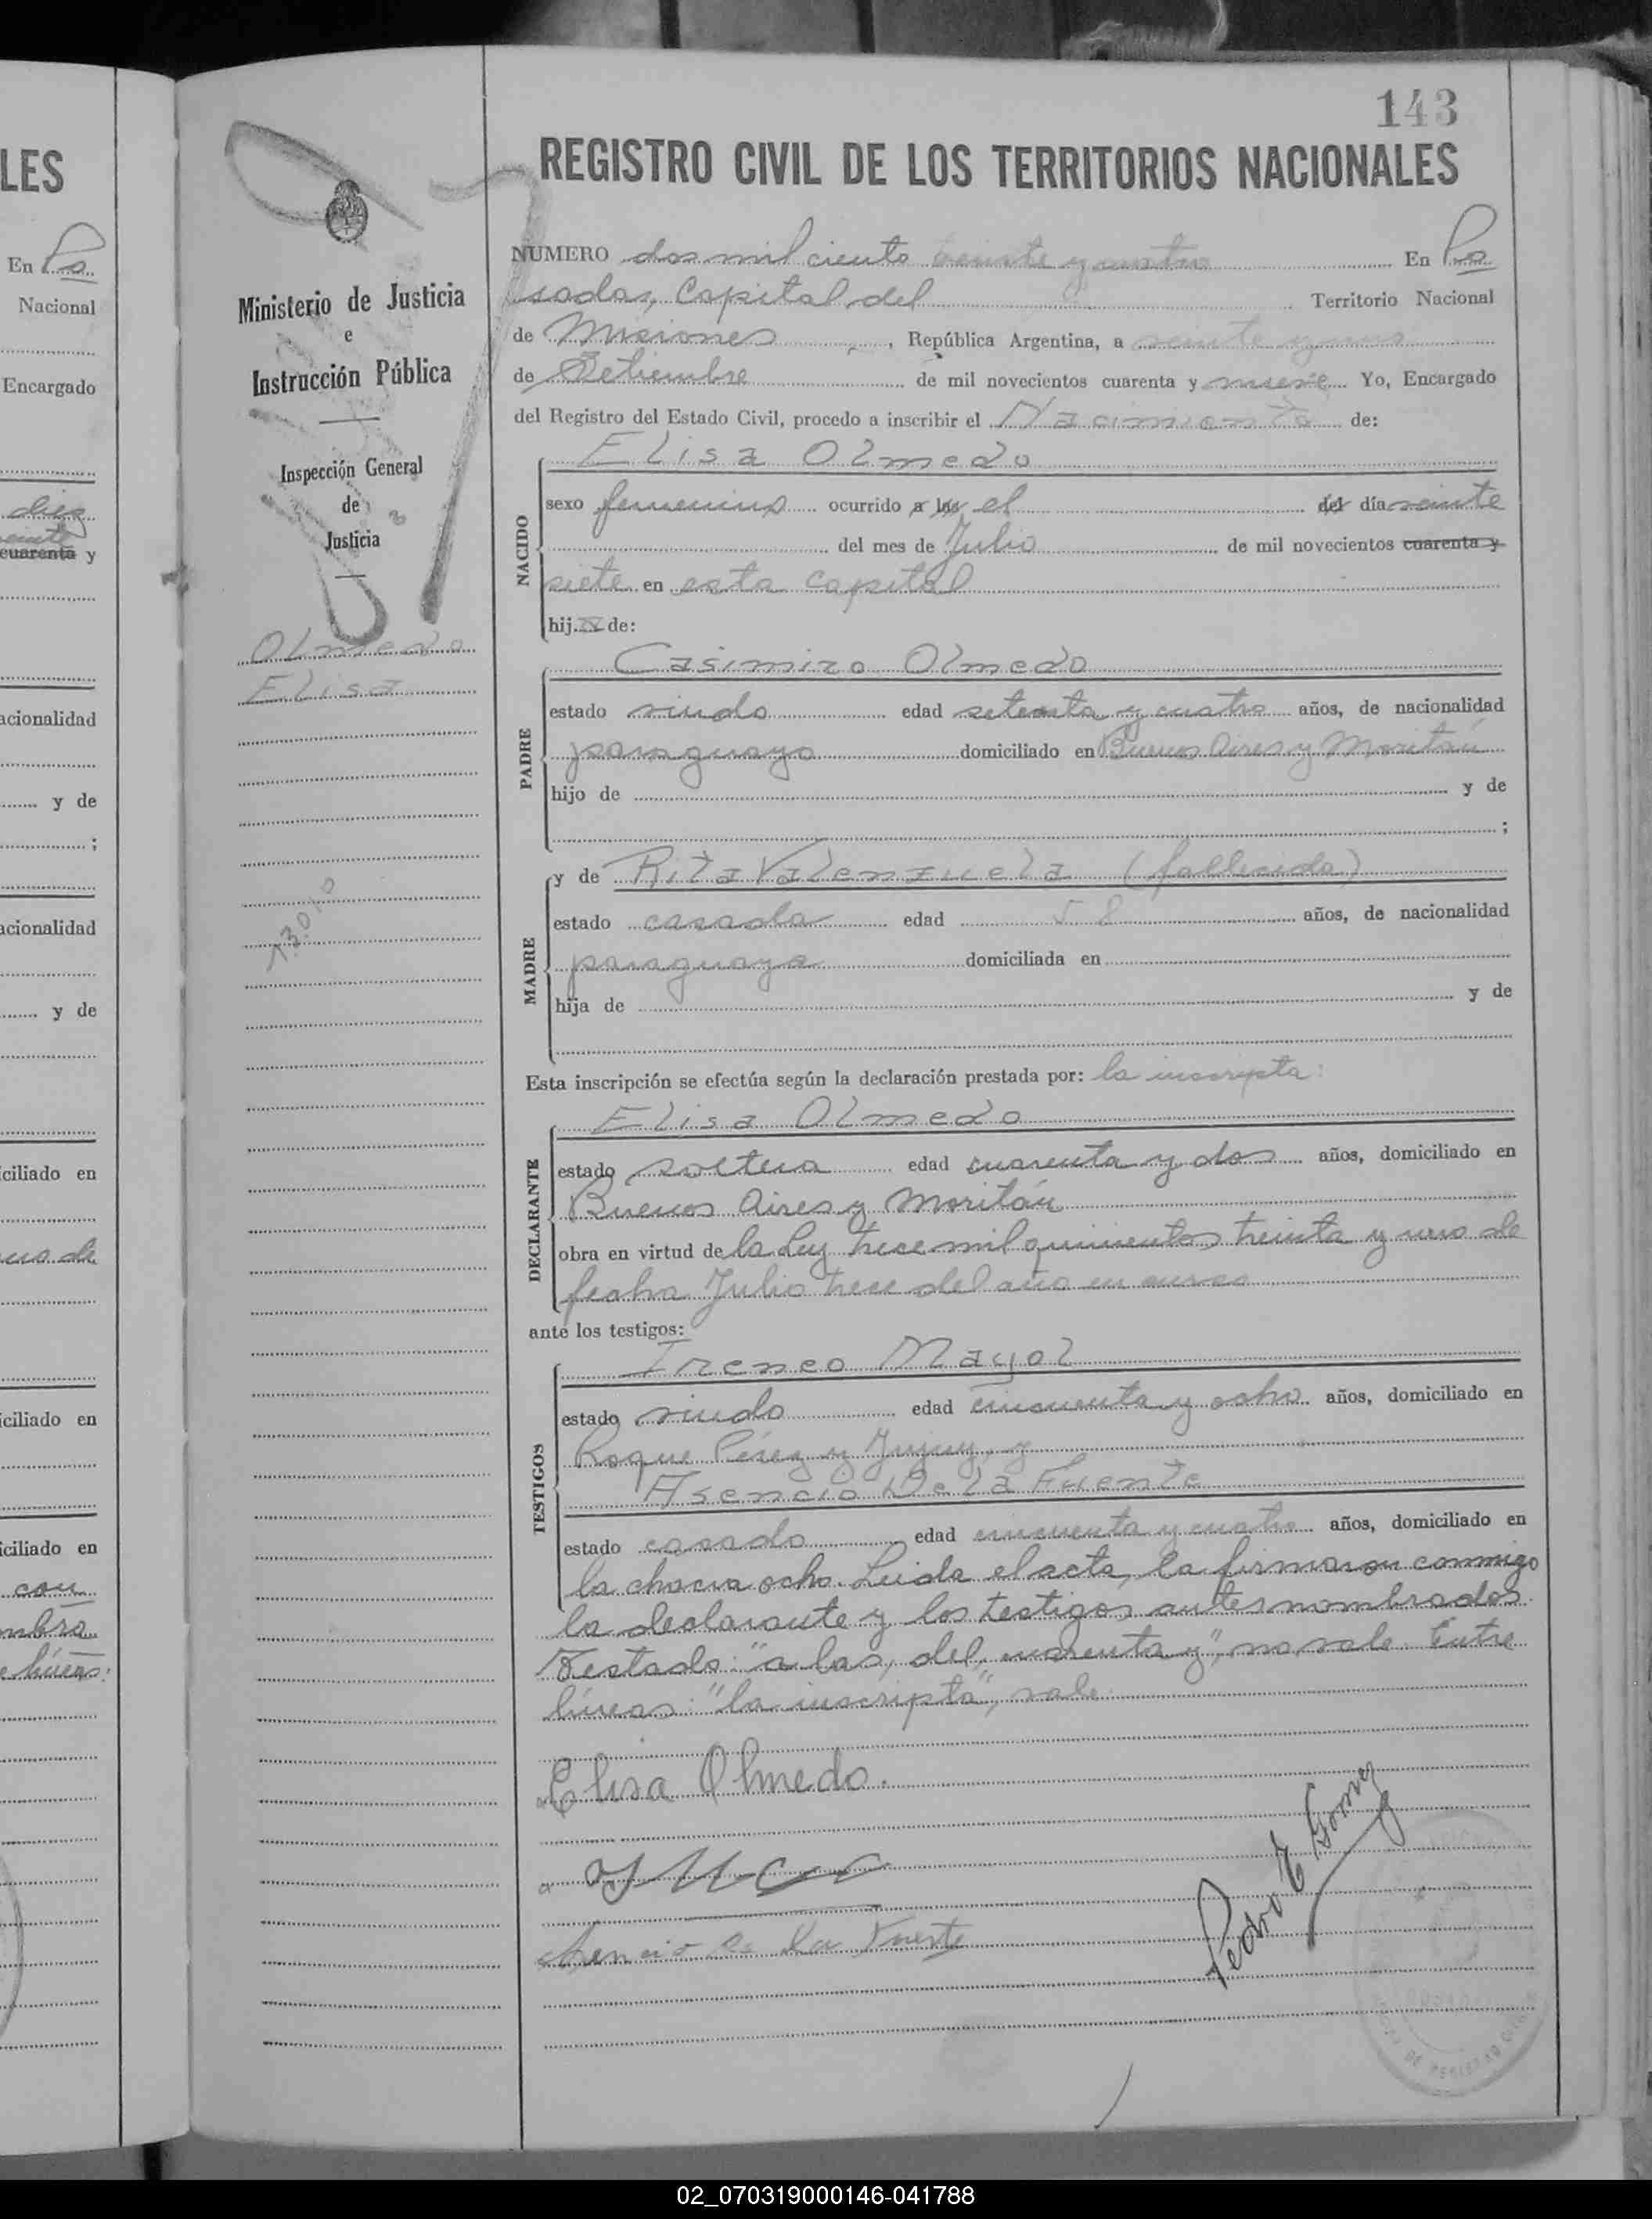 LES
En Po
Nacional
Encargado
diez
veinte
cuarenta y
acionalidad
y de
;
acionalidad
y de
ciliado en
uno de
iciliado en
iciliado en
con
mbra
e líneas:
Ministerio de Justicia
e
Instrucción Pública
Inspección General
de
Justicia
Olmedo
Elisa
143
REGISTRO CIVIL DE LOS TERRITORIOS NACIONALES
NUMERO dos mil ciento veinte y cuatro En Po
sadas, Capital del Territorio Nacional
de Misiones, República Argentina, a veinte y uno
de Setiembre de mil novecientos cuarenta y nueve Yo, Encargado
del Registro del Estado Civil, procedo a inscribir el Nacimiento de:
NACIDO
Elisa Olmedo
sexo femenino ocurrido a las el del día veinte
del mes de Julio de mil novecientos cuarenta y
siete en esta capital
hij de:
PADRE
Casimiro Olmedo
estado viudo edad setenta y cuatro años, de nacionalidad
paraguaya domiciliado en Buenos Aires y Moritán
hijo de y de
;
MADRE
y de Rita Valenzuela (fallecida)
estado casada edad 58 años, de nacionalidad
paraguaya domiciliada en
hija de y de
Esta inscripción se efectúa según la declaración prestada por: la inscripta:
DECLARANTE
Elisa Olmedo
estado soltera edad cuarenta y dos años, domiciliado en
Buenos Aires y Moritán
obra en virtud de la Ley trece mil quinientos treinta y uno de
fecha Julio trece del año en curso
ante los testigos:
TESTIGOS
Ireneo Mayol
estado viudo edad cincuenta y ocho años, domiciliado en
Roque Pérez y Jujuy, y
Asencio De la Fuente
estado casado edad cincuenta y cuatro años, domiciliado en
la chacra ocho. Leida el acta, la firmaron conmigo
la declarante y los testigos antes nombrados.
Testado: "a las, del, cuarenta y", no vale. Entre
líneas: "la inscripta", vale.
Elisa Olmedo.
Asencio de la Fuente
Pedro E Gomez
02_070319000146-041788